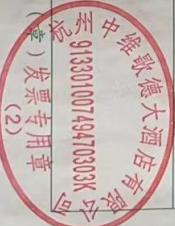 杭州中维歌德大酒店有限公司
91330100749470303K
发票专用章
(2)
章)